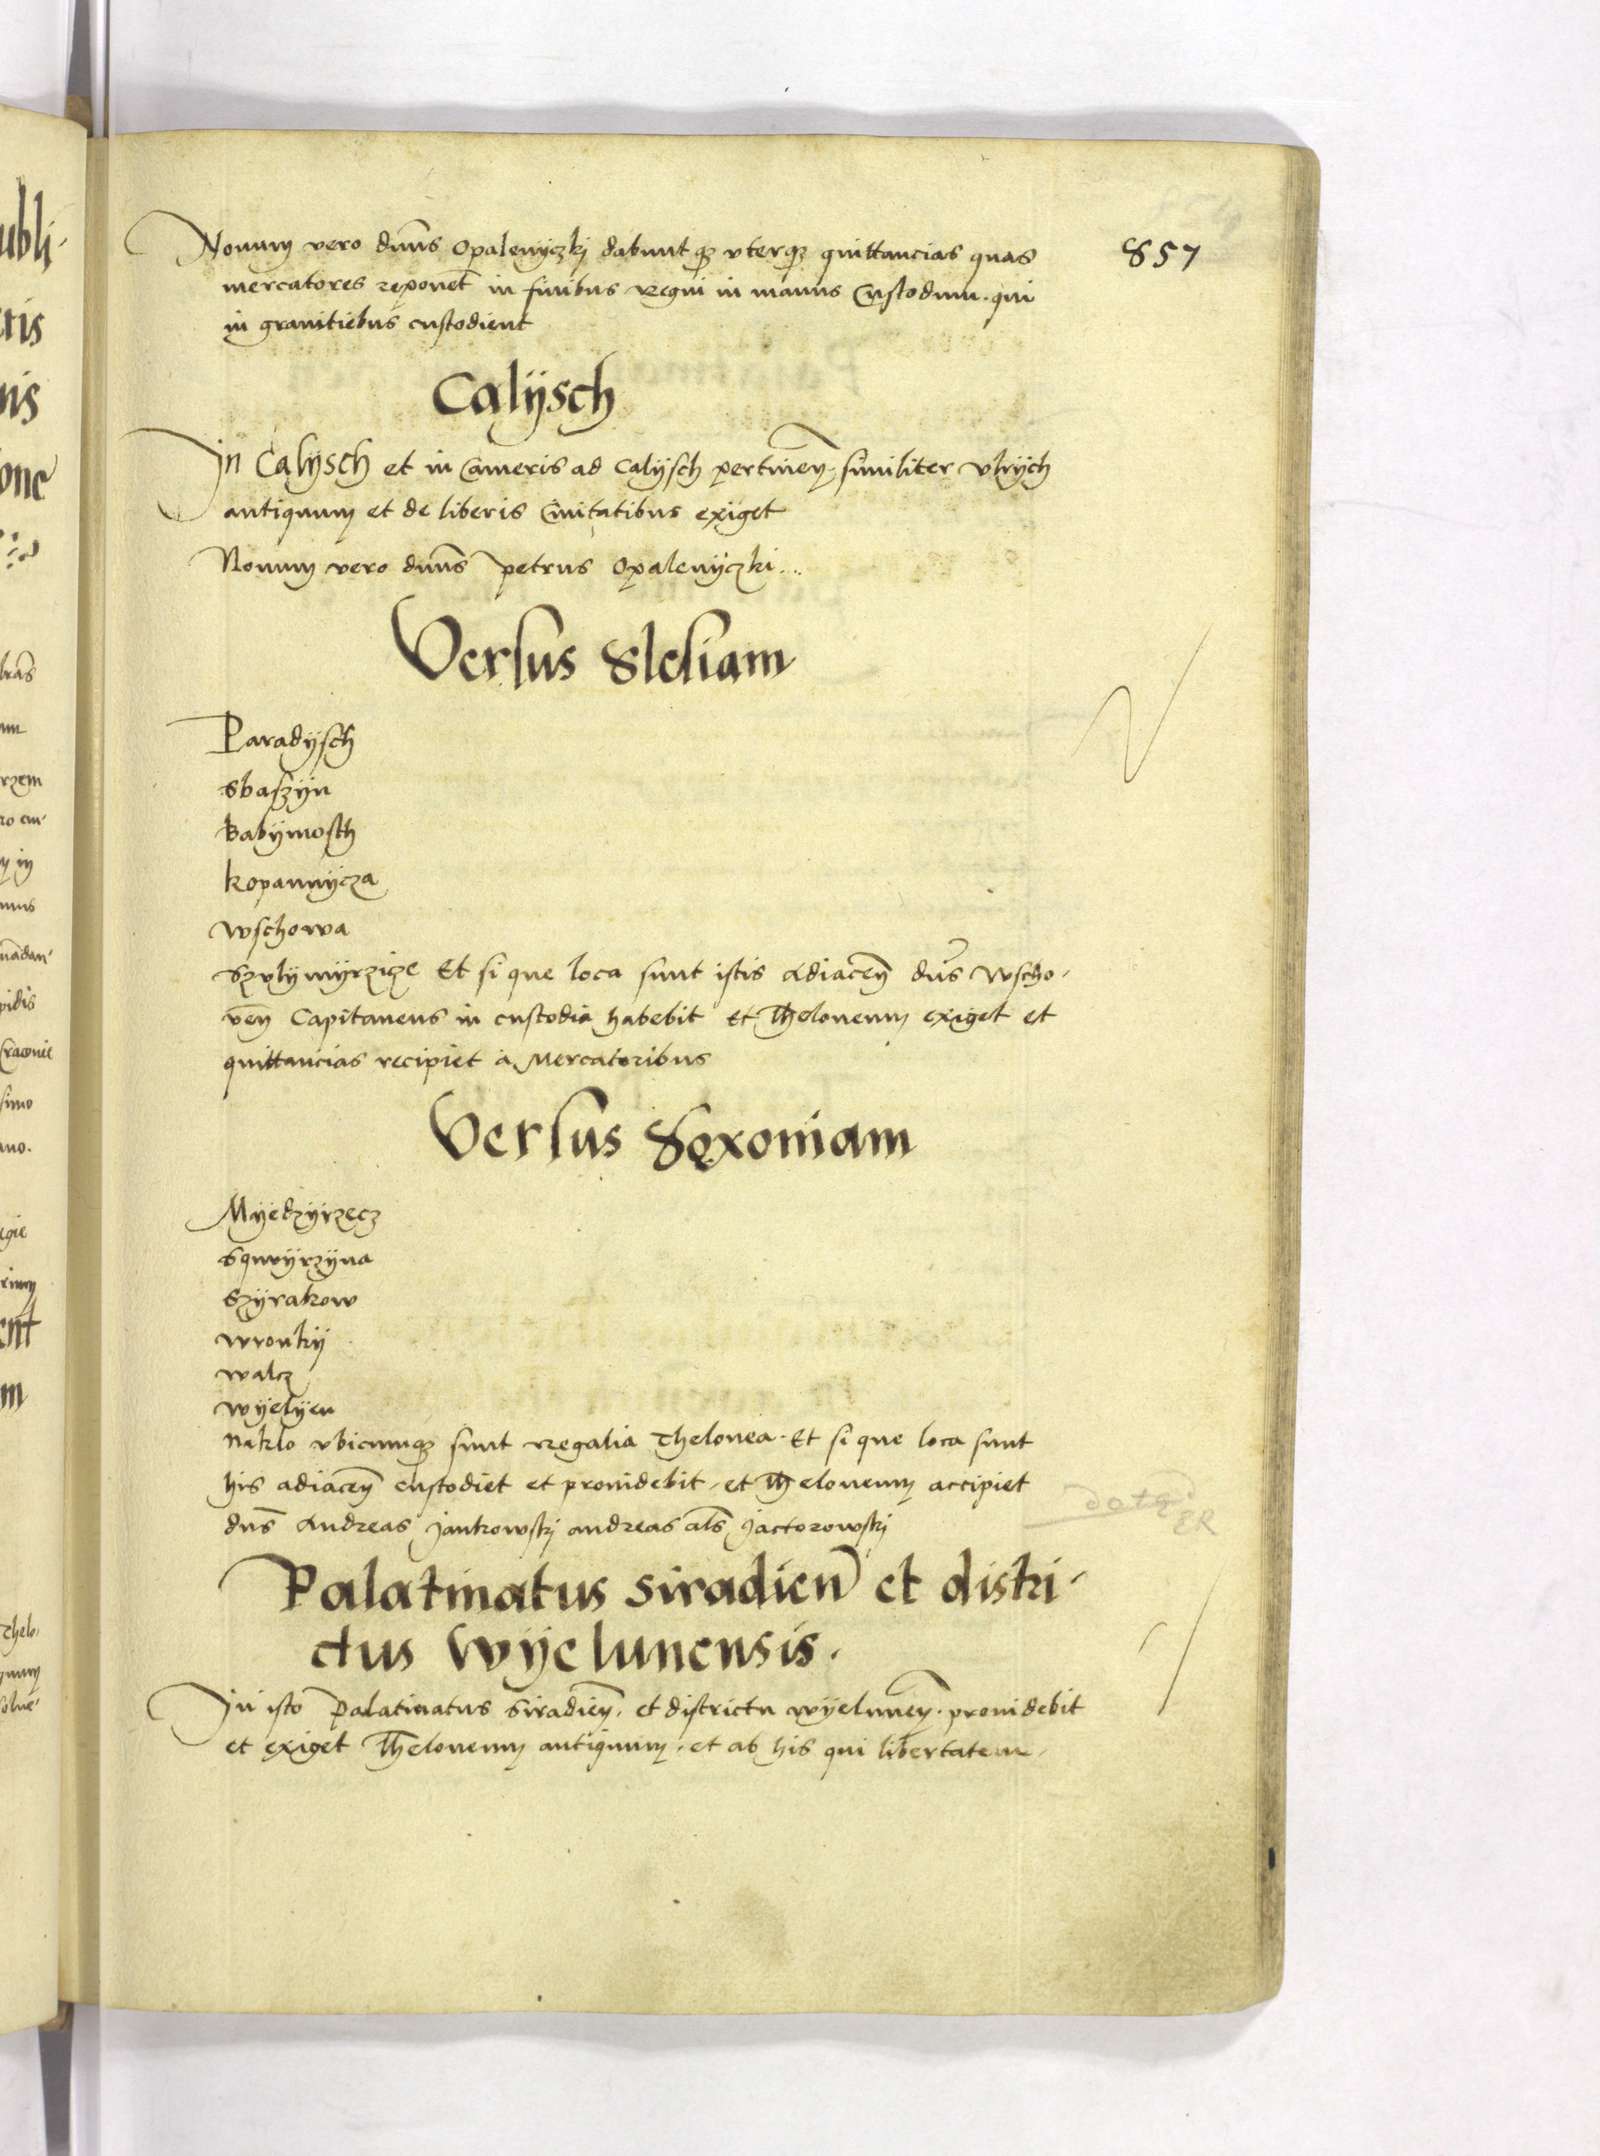 857
Nouum vero dnus Opalenyczkj dabunt qz vterqz quittancias quas
mercatores reponet in finibus Regni in manus Custodum. qui
in granitiebus custodient
Calijsch
In Calijsch et in Cameris ad Calijsch pertinen. similiter vlrijch
antiquum et de liberis Ciuitatibus exiget
Nouum vero dnus petrus Opalenijczki...
Versus Slesiam
Paradijsch
Sbaszijn
Babijmosth
kopannijcza
wschowa
Et si que loca sunt istis Adiacen dns wscho-
ven Capitaneus in custodia habebit Et Theloneum exiget et
quittancias recipiet a Mercatoribus
Versus Sexoniam
Mijedzijrzecz
Sqwijrzijna
Szijrakow
wronkij
walcz
wijelijen
Naklo vbicumqz sunt Regalia Thelonea. Et si que loca sunt
his adiacen custodiet et prouidebit, et Theloneum accipiet
dns Andreas Jankowskj andreas als Jactorowskj
Palatinatus siradien et distri-
ctus wijelunensis.
In isto Palatinatus Siradien. et districtu wijelunen. prouidebit
et exiget Theloneum antiquum. et ab his qui libertatem